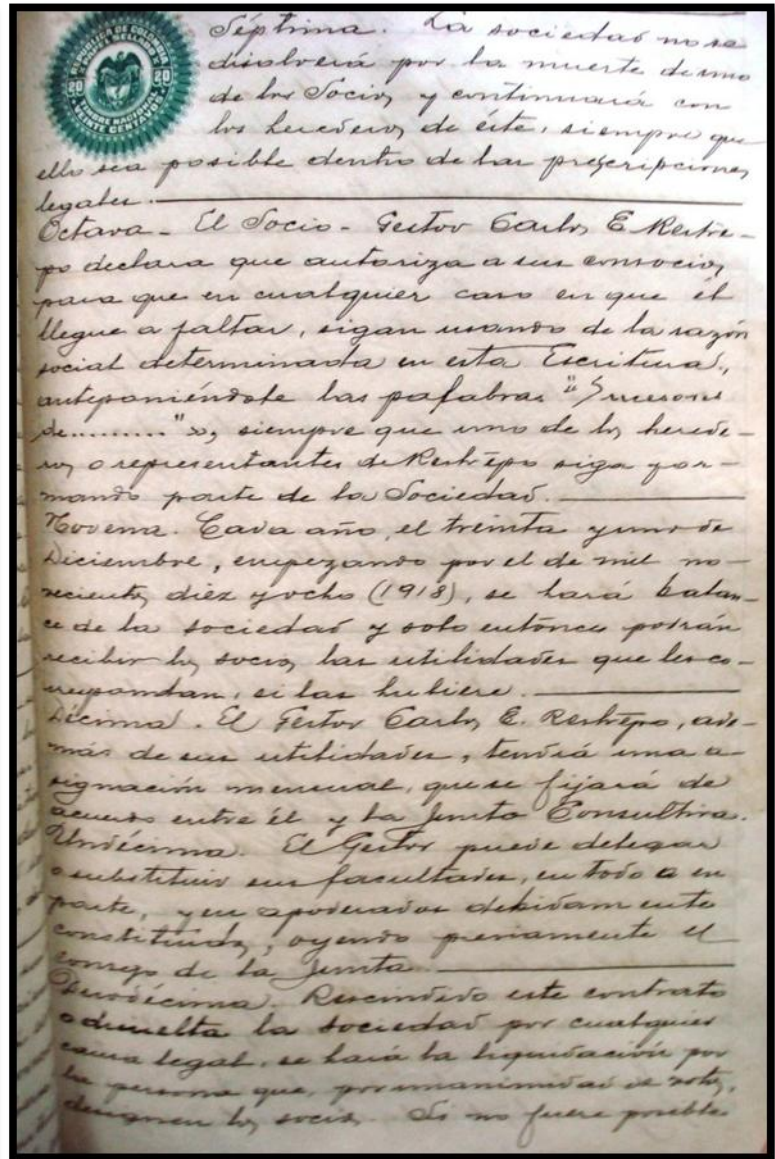 REPUBLICA DE COLOMBIA
PAPEL SELLADO
20 20
TIMBRE NACIONAL
VEINTE CENTAVOS
Séptima. La sociedad no se
disolverá por la muerte de uno
de los Socios y continuará con
los herederos de éste, siempre que
ello sea posible dentro de las prescripciones
legales.
Octava - El Socio - Gestor Carlos E. Restre-
po declara que autoriza a sus consocios
para que en cualquier caso en que él
llegue a faltar, sigan usando de la razón
social determinada en esta Escritura,
anteponiéndole las palabras "Sucesores
de.........", siempre que uno de los herede-
ros o representantes de Restrepo siga for-
mando parte de la Sociedad.
Novena. Cada año, el treinta y uno de
Diciembre, empezando por el de mil no-
vecientos diez y ocho (1918), se hará balan-
ce de la sociedad y solo entónces podrán
recibir los socios las utilidades que les co-
rrespondan, si las hubiere.
Décima. El Gestor Carlos E. Restrepo, ade-
más de sus utilidades, tendrá una a-
signación mensual, que se fijará de
acuerdo entre él y la Junta Consultiva.
Undécima. El Gestor puede delegar
o substituir sus facultades, en todo o en
parte, y en apoderados debidamente
constituidos, oyendo previamente el
consejo de la Junta.
Duodécima. Rescindido este contrato
o disuelta la sociedad por cualquier
causa legal, se hará la liquidación por
la persona que, por unanimidad de votos,
designen los socios. Si no fuere posible